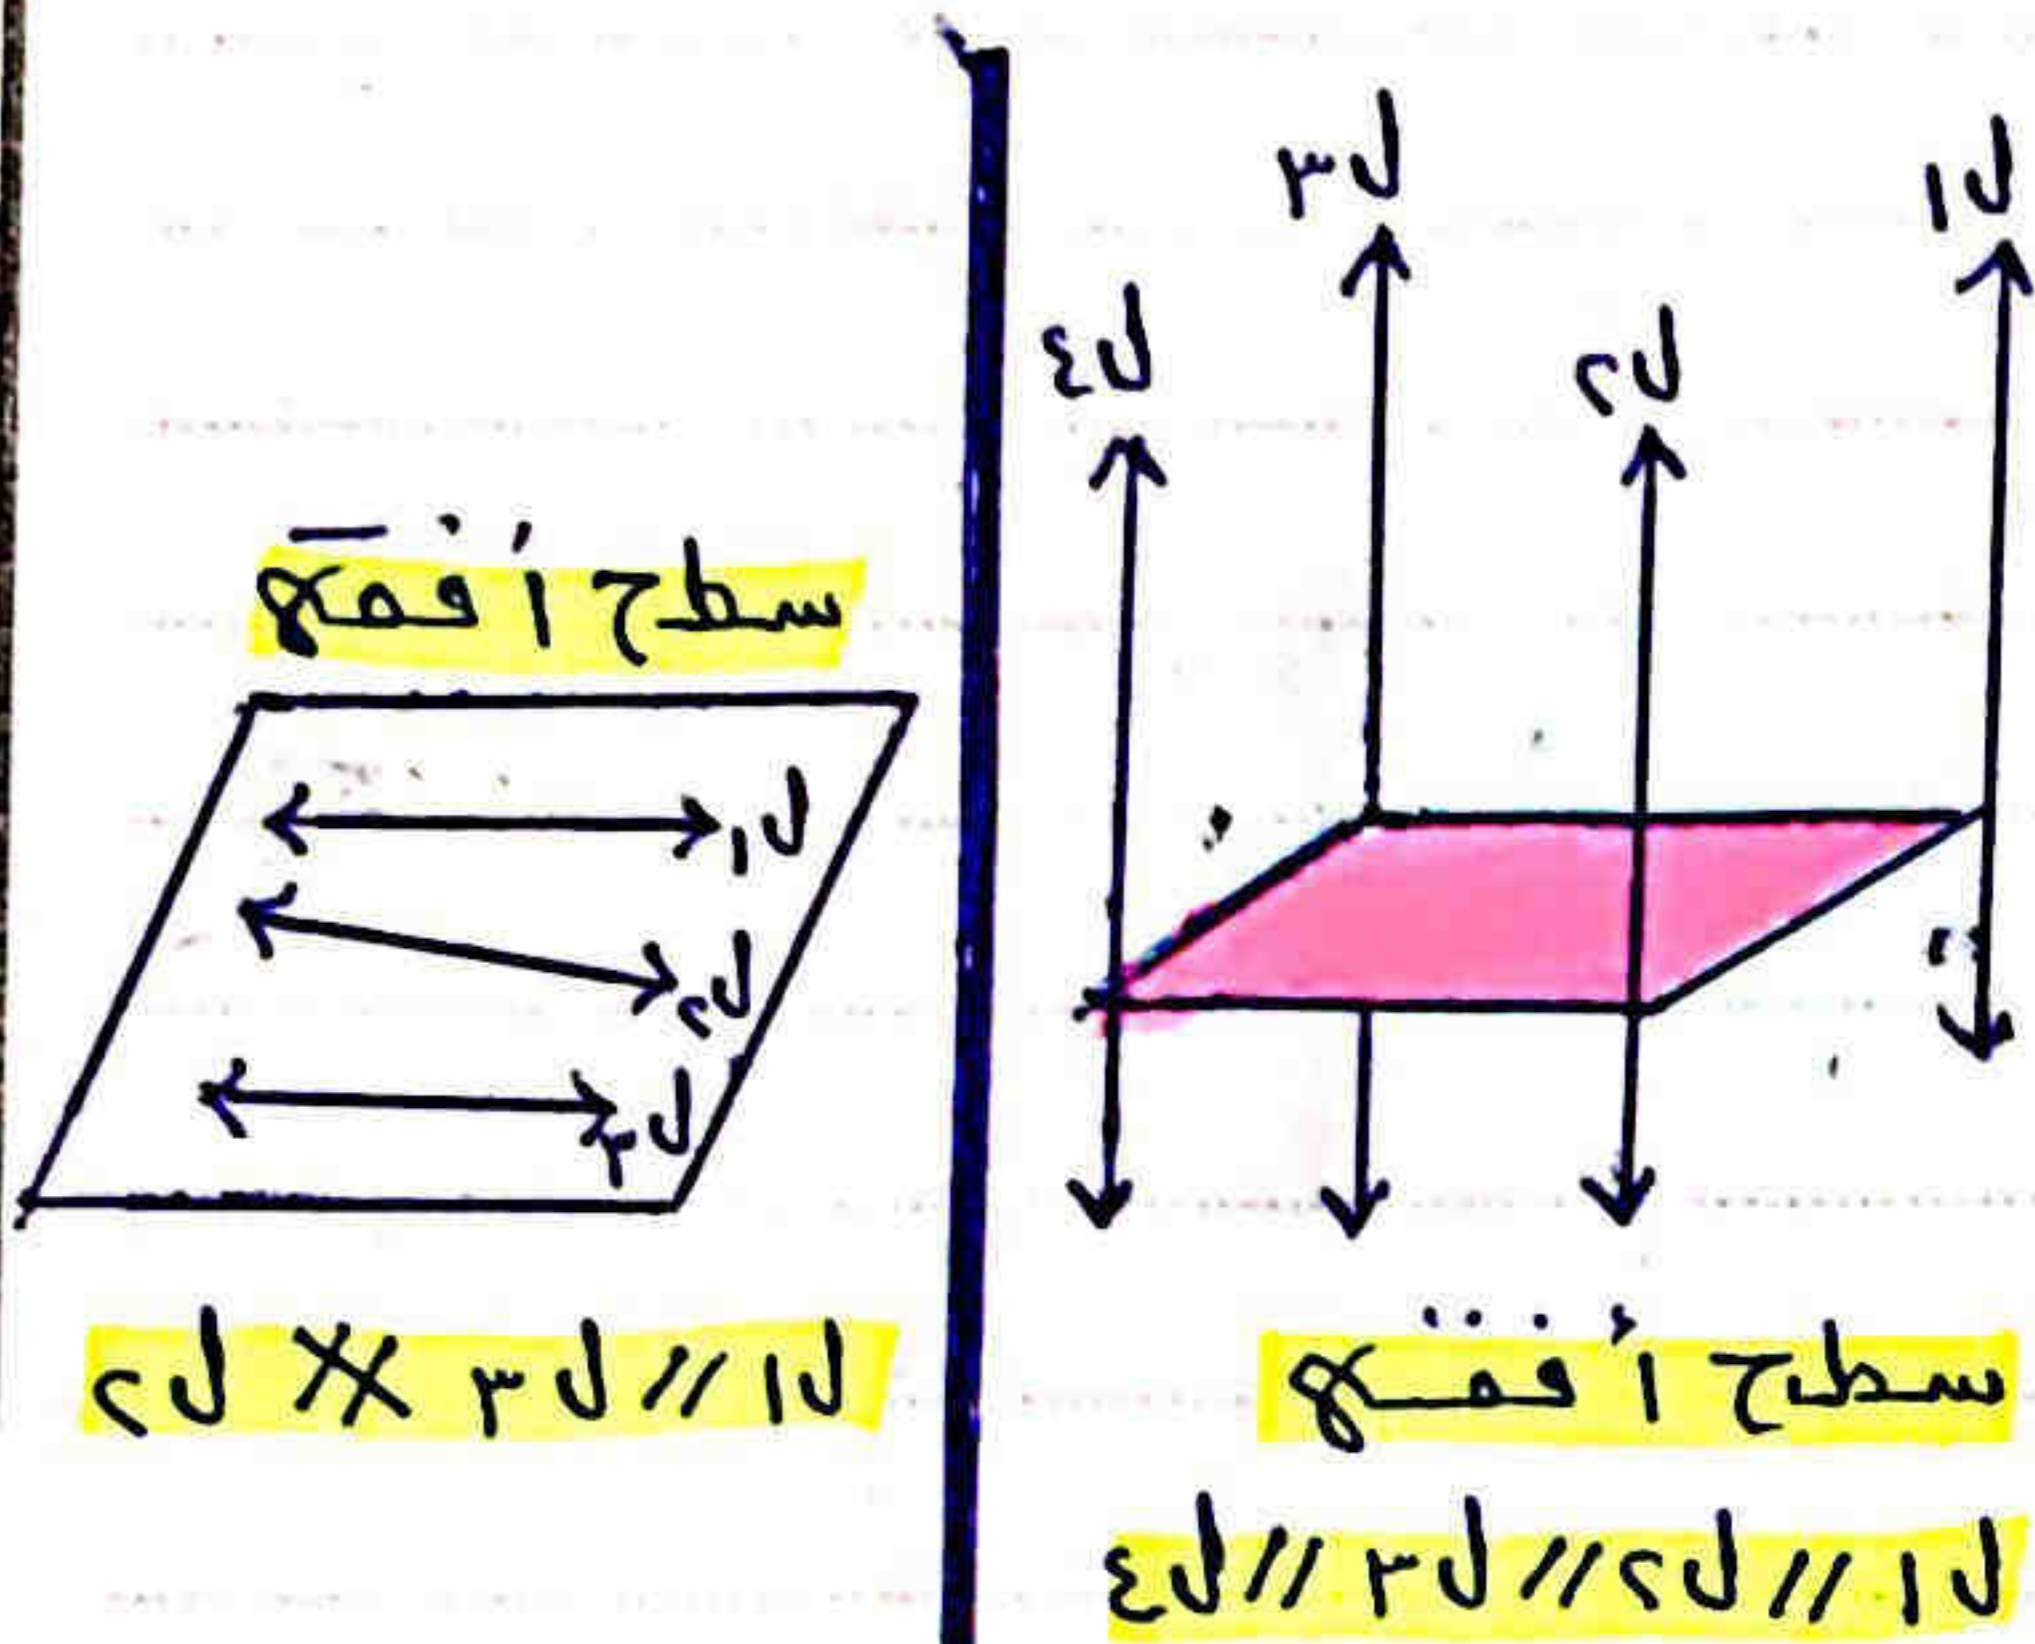 ل١
ل٣
ل٢
ل٤
سطح أفقي
ل١ // ل٢ // ل٣ // ل٤
سطح أفقي
ل١
ل٢
ل٣
ل١ // ل٣ ∦ ل٢